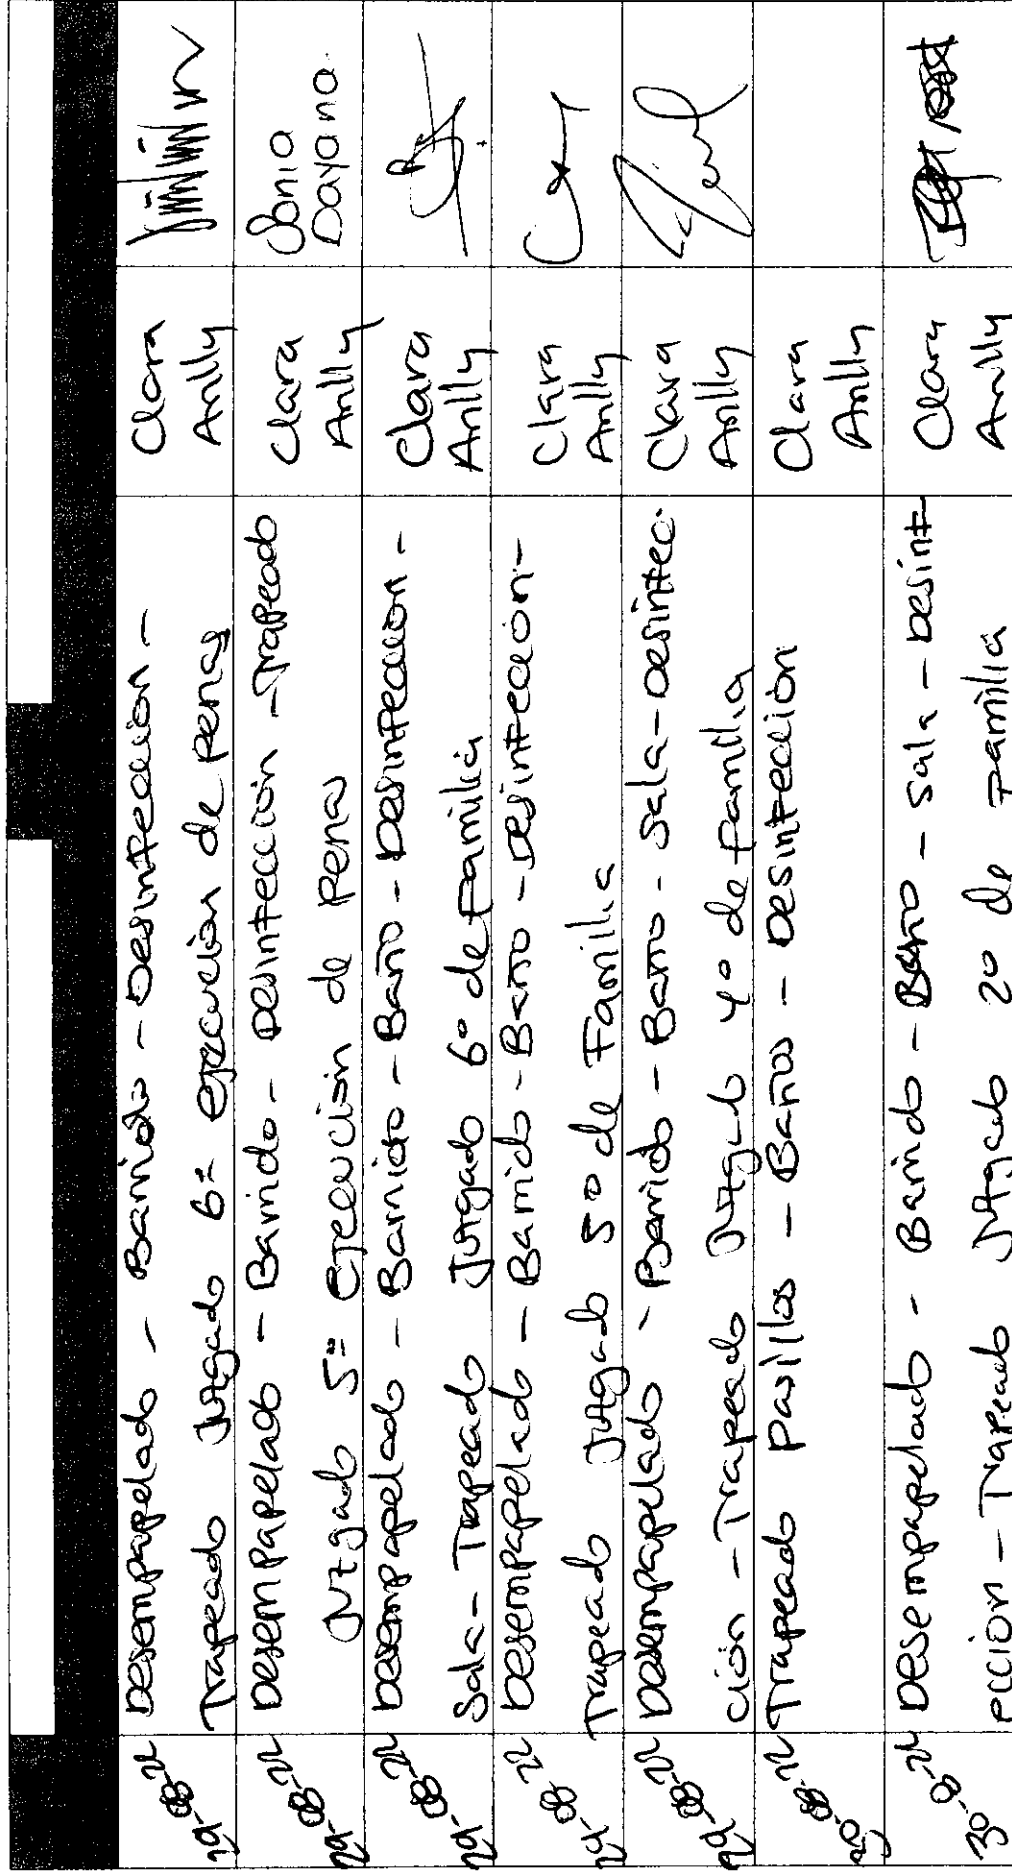 29-08-22 Desempapelado - Barrido - Desinfección - Clara
Trapeado Juzgado 6º ejecución de penas Anlly
29-08-22 Desempapelado - Barrido - Desinfección - Trapeado Clara Sonia
Juzgado 5º Ejecución de penas Anlly Dayana.
29-08-22 Desempapelado - Barrido - Baño - Desinfección - Clara
Sala - Trapeado Juzgado 6º de Familia Anlly
29-08-22 Desempapelado - Barrido - Baño - Desinfección - Clara
Trapeado Juzgado 5º de Familia Anlly
29-08-22 Desempapelado - Barrido - Baño - Sala - Desinfec Clara
ción - Trapeado Juzgado 4º de familia Anlly
30-08-22 Trapeado Pasillos - Baños - Desinfección Clara
Anlly
30-08-22 Desempapelado - Barrido - Baño - Sala - Desinf Clara
ección - Trapeado Juzgado 2º de Familia Anlly